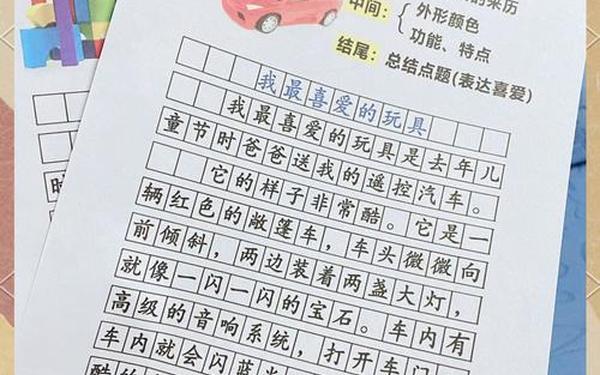 的来历
中间：{外形颜色
功能、特点
结尾：总结点题(表达喜爱)
我最喜爱的玩具
我最喜爱的玩具是去年儿
童节时爸爸送我的遥控汽车。
它的样子非常酷。它是一
辆红色的敞篷车，车头微微向
前倾斜，两边装着两盏大灯，
就像一闪一闪的宝石。车内有
高级的音响系统，打开车门
车内就会闪蓝光
酷的